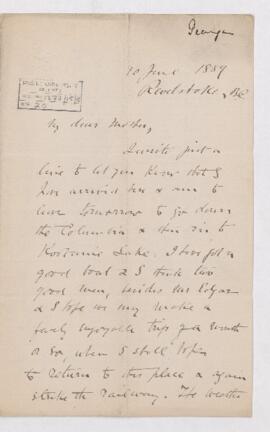 George
10 June 1889
Revelstoke, BC
My dear Mother,
I write just a
line to let you know that I
have arrived here & am to
leave tomorrow to go down
the Columbia & then on to
Kootanie Lake. I have got a
good boat & I think two
good men, besides
& I hope we may make a
fairly enjoyable trip for a month
or so, when I shall
to return to this place & again
strike the railway. The weather